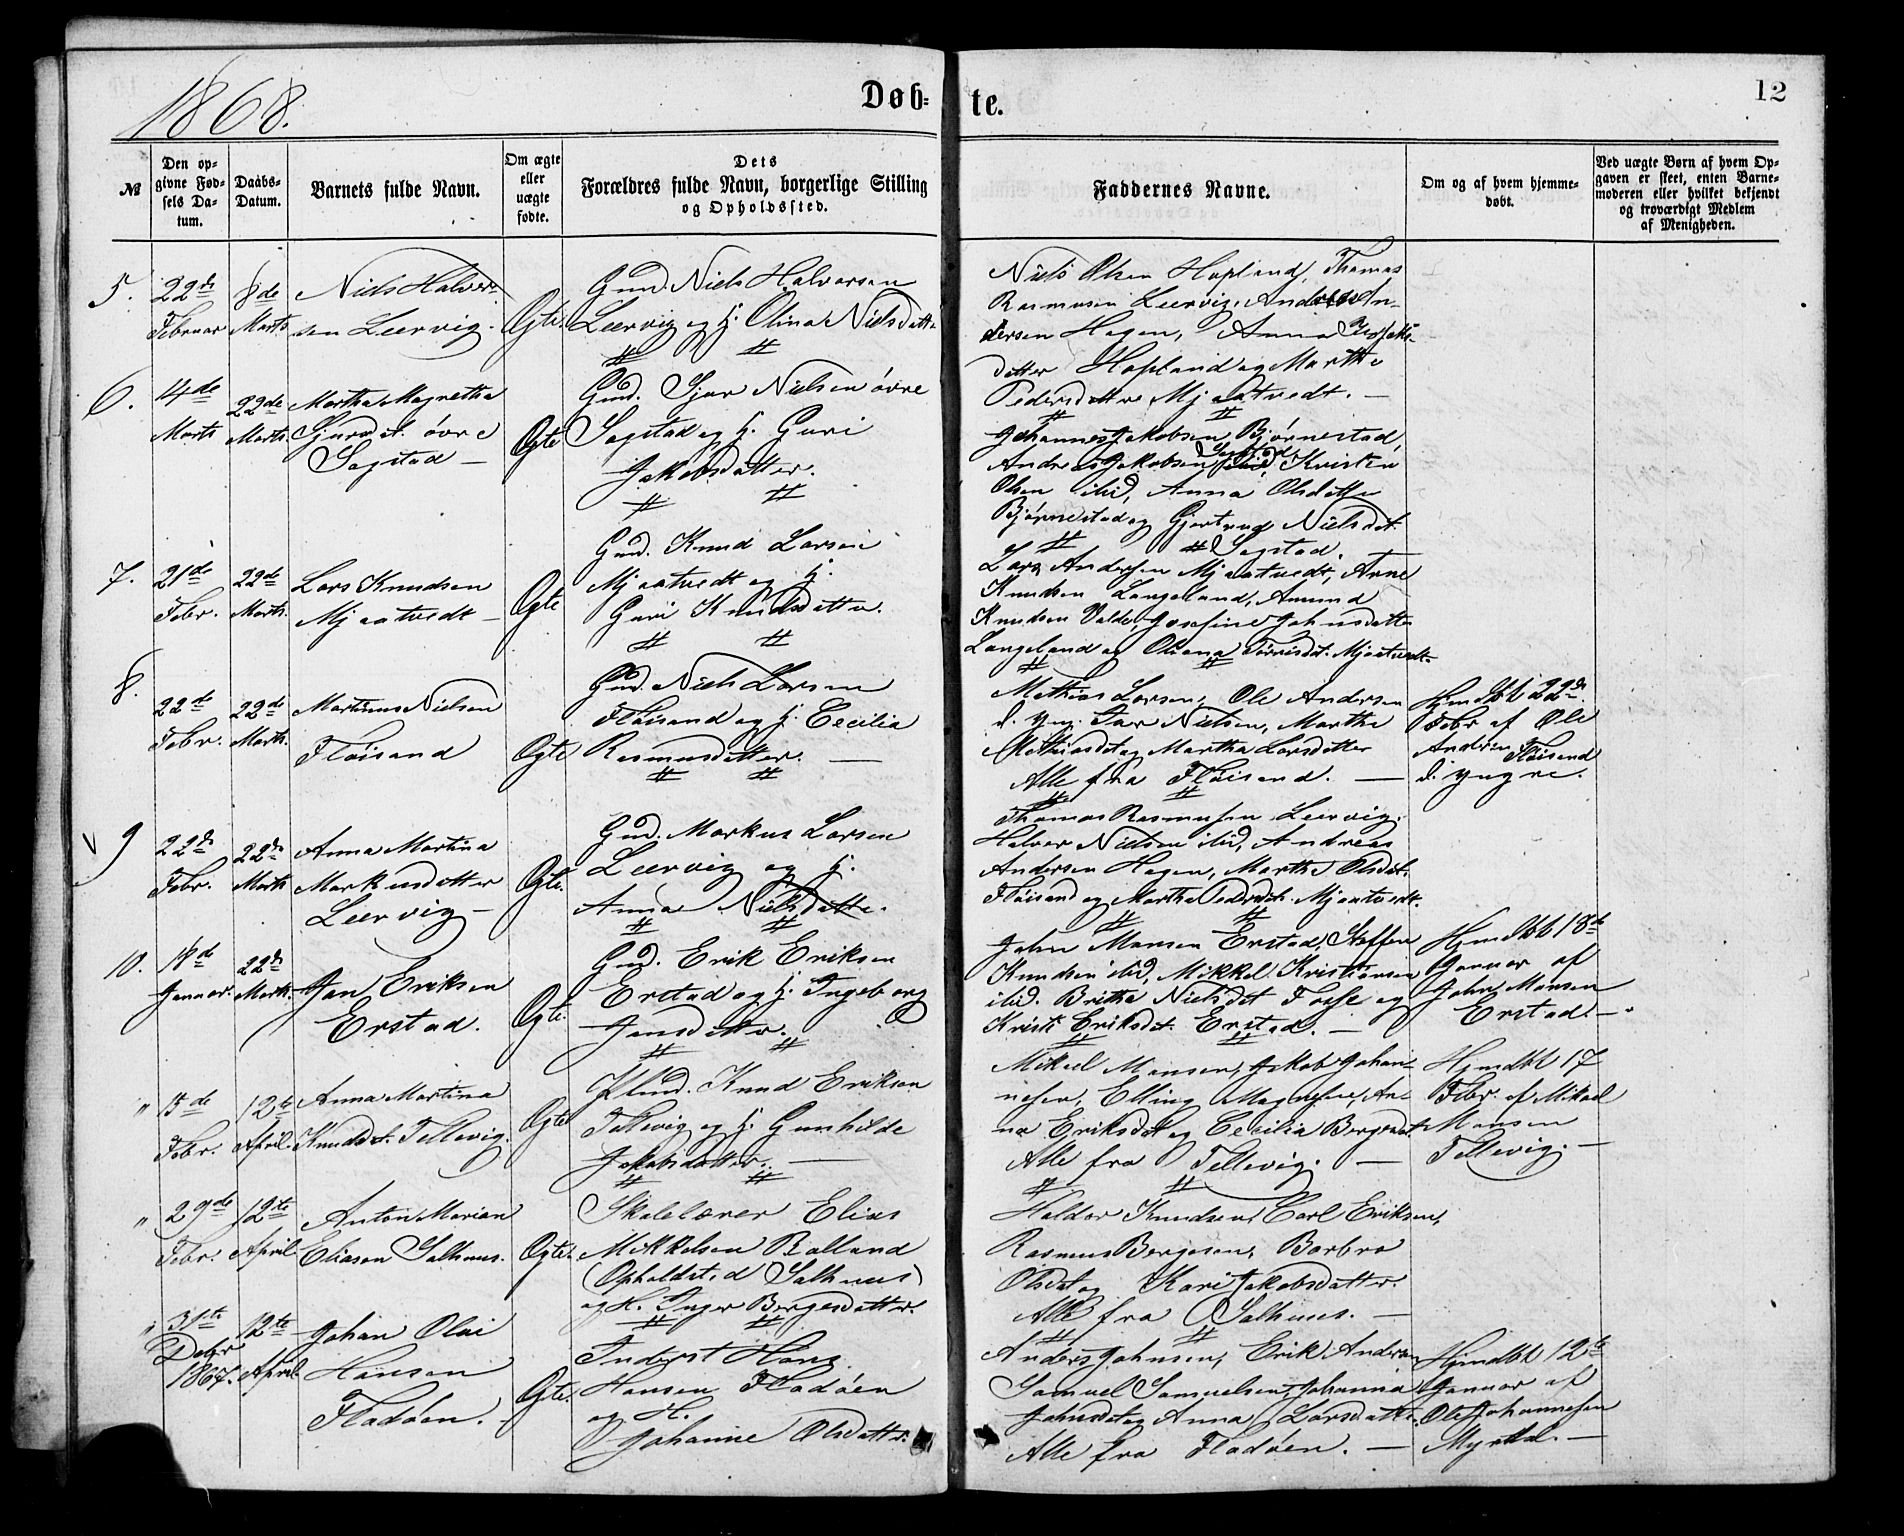 1868.
Døb-
te.
12
№
Den op-
givne Fød-
sels Da-
tum.
Daabs-
Datum.
Barnets fulde Navn.
Om ægte
eller
uægte
fødte.
Dets
Forældres fulde Navn, borgerlige Stilling
og Opholdssted.
Faddernes Navne.
Om og af hvem hjemme-
døbt.
Ved uægte Børn af hvem Op-
gaven er skeet, enten Barne-
moderen eller hvilket bekjendt
og troværdigt Medlem
af Menigheden.
5.
22de
Februar
8de
Marts
Niels Halver-
sen Leervig.
Ægte.
Gmd. Niels Halvorsen
Leervig og H. Olina Nielsdatte
Niels Olsen Hopland, Thomas
Rasmusen Leervig, Andreas An-
dersen Hagen, Anna
datter Hopland og Marthe
Pedersdatter Mjaatvedt. —
6.
4de
Marts
22de
Marts
Martha Magretha
Sjursdt. øvre
Sagstad —
Ægte
Gmd. Sjur Nielsen øvre
Sagstad og H. Guri
Jakobsdatter.
Johannes Jakobsen Bjørnestad,
Andreas Jakobsen Sagstad, Kristen
Olsen ibid, Anna Olsdatte
Bjørnestad og Gjertrud Nielsdt.
Sagstad.
7.
21de
Febr.
22de
Marts.
Lars Knudsen
Mjaatvedt —
Ægte
Gmd. Knud Larsen
Mjaatvedt og H.
Guri Knudsdatter.
Lars Andersen Mjaatvedt, Arne
Knudsen Langeland, Amund
Knudsen Valde, Josefine Johnsdatter
Langeland og Oliana Tørrisdt. Mjaatvedt.
8.
22de
Febr.
22de
Marts.
Martinus Nielsen
Fløisand
Ægte
Gmd. Niels Larsen
Fløisand og H. Cecilia
Rasmusdatter. —
Mathias Larsen, Ole Andersen
d. yng. Lars Nielsen, Marthe
Mathiasdt og Martha Larsdatter
Alle fra Fløisand. —
Hjmdbt 22de
Febr af Ole
Andersen Fløisand
d. yngre.
9
22de
Febr.
22de
Marts
Anna Martina
Markusdatter
Leervig —
Ægte.
Gmd. Markus Larsen
Leervig og H.
Anna Nielsdatte.
Thomas Rasmusen Leervig,
Halvor Nielsen ibid, Andreas
Andersen Hagen, Marthe Olsdt.
Fløisand og Martha Pedersdt. Mjaatvedt.
10.
18de
Januar.
22de
Marts.
Jan Eriksen
Erstad.
Ægte.
Gmd. Erik Eriksen
Erstad og H. Ingeborg
Jensdatter.
John Monsen Erstad, Steffen
Knudsen ibid, Mikkel Kristiansen
ibid. Britha Nielsdt Fosse og
Kristi Eriksdt. Erstad. —
Hjmdbt 18de
Januar af
John Monsen
Erstad. —
"
15de
Febr.
12te
April.
Anna Martina
Knudsdt. Tellevig.
Ægte
Plmd. Knud Eriksen
Tellevig og H. Gunhilde
Jakobsdatter. —
Mikael Monsen, Jakob Johan-
nesen, Elling Magnesen, An-
na Eriksdt og Cecilia Bergesdt.
Alle fra Tellevig. —
Hjmdbt 17
Febr. af Mikael
Monsen
Tellevig. —
"
29de
Febr.
12te
April
Anton Marian
Eliasen Salhuus.
Ægte.
Skolelærer Elias
Mikkelsen Rolland
(Opholdsted Salhuus)
og H. Inger Bergesdatter.
Haldor Knudsen, Carl Eriksen,
Rasmus Bergesen, Barbra
Olsdt og Kari Jakobsdatter.
Alle fra Salhuus. —
"
31te
Decbr
1867.
12te
April
Johan Olai
Hansen
Fladøen. —
Ægte.
Inderst Hans
Hansen Fladøen
og H.
Johanne Olsdatter.
Anders Johnsen, Erik Andersen
Samuel Samuelsen, Johanna
Johnsdt og Anna Larsdatter.
Alle fra Fladøen. —
Hjmdbt 12te
Januar af
Ole Johannesen
Myrtle. —